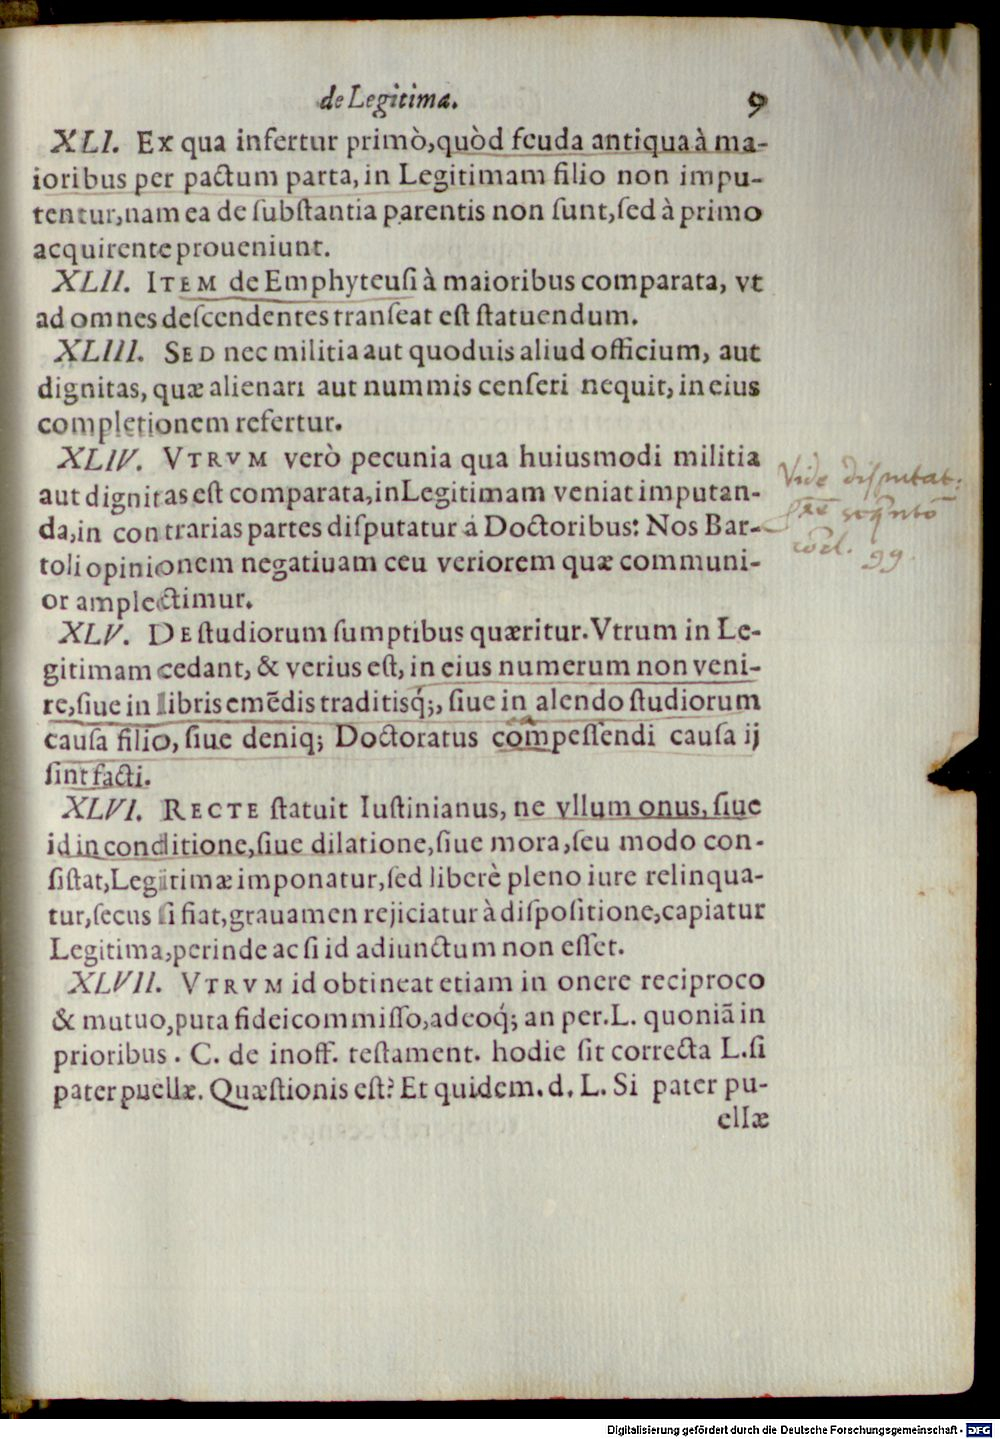 de Legitima. 9
XLI. Ex qua infertur primò, quòd feuda antiqua à ma-
ioribus per pactum parta, in Legitimam filio non impu-
tentur, nam ea de ſubſtantia parentis non ſunt, ſed à primo
acquirente proueniunt.
XLII. ITEM de Emphyteuſi à maioribus comparata, vt
ad omnes deſcendentes tranſeat eſt ſtatuendum.
XLIII. SED nec militia aut quoduis aliud officium, aut
dignitas, quæ alienari aut nummis cenſeri nequit, in eius
completionem refertur.
XLIV. VTRVM verò pecunia qua huiusmodi militia
aut dignitas eſt comparata, in Legitimam veniat imputan-
da, in contrarias partes diſputatur á Doctoribus: Nos Bar-
toli opinionem negatiuam ceu veriorem quæ communi-
or amplectimur.
Vide disputat:
99.
XLV. DE ſtudiorum ſumptibus quæritur. Vtrum in Le-
gitimam cedant, & verius eſt, in eius numerum non veni-
re, ſiue in libris emẽdis traditisq́;, ſiue in alendo ſtudiorum
cauſa filio, ſiue deniq; Doctoratus compeſſendi cauſa ij
ſint facti.
XLVI. RECTE ſtatuit Iuſtinianus, ne vllum onus, ſiue
id in conditione, ſiue dilatione, ſiue mora, ſeu modo con-
ſiſtat, Legitimæ imponatur, ſed liberè pleno iure relinqua-
tur, ſecus ſi fiat, grauamen rejiciatur à diſpoſitione, capiatur
Legitima, perinde ac ſi id adiunctum non eſſet.
XLVII. VTRVM id obtineat etiam in onere reciproco
& mutuo, puta fideicommiſſo, adeoq́; an per. L. quoniã in
prioribus. C. de inoff. teſtament. hodie ſit correcta L. ſi
pater puellæ. Quæſtionis eſt? Et quidem. d. L. Si pater pu-
ellæ
Digitalisierung gefördert durch die Deutsche Forschungsgemeinschaft - DFG